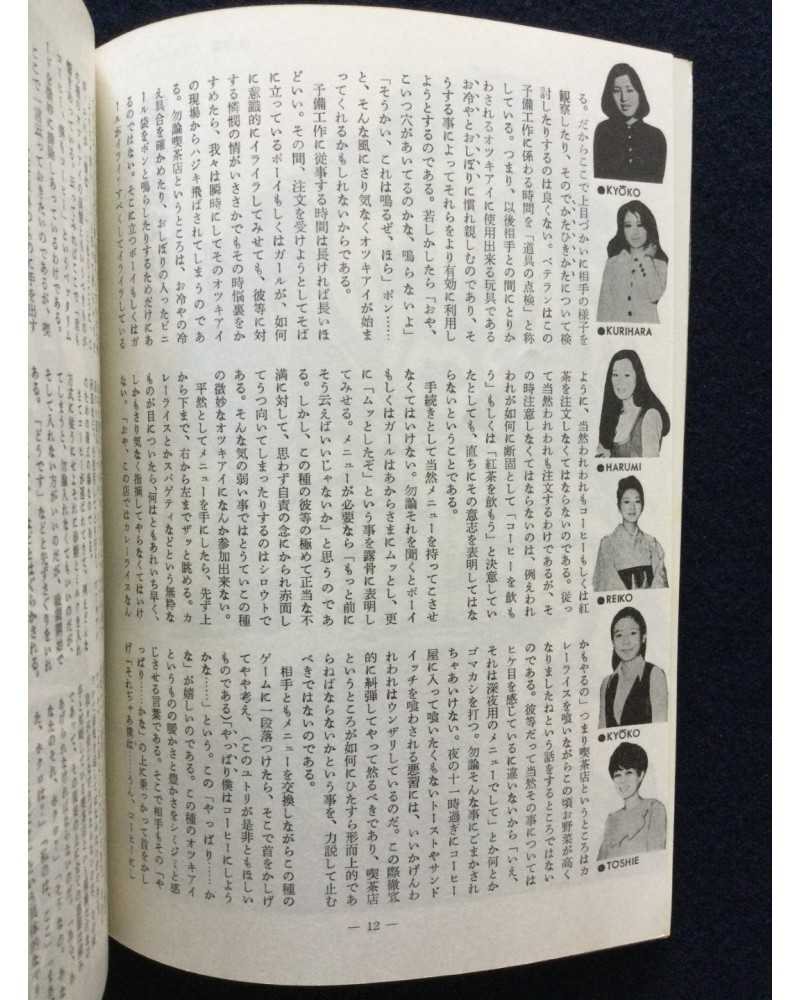 る。だからここで上目づかいに相手の様子を
観察したり、そのでかたひきかたについて検
討したりするのは良くない。ベテランはこの
予備工作に係わる時間を「道具の点検」と称
している。つまり、以後相手との間にとりか
わされるオツキアイに使用出来る玩具である
お冷やとおしぼりに慣れ親しむのであり、そ
うする事によってそれらをより有効に利用し
ようとするのである。若しかしたら「おや、
こいつ穴があいてるのかな、鳴らないよ」
「そうかい、これは鳴るぜ、ほら」ポン……
と、そんな風にさり気なくオツキアイが始ま
ってくれるかもしれないからである。
予備工作に従事する時間は長ければ長いほ
どいい。その間、注文を受けようとしてそば
に立っているボーイもしくはガールが、如何
に意識的にイライラしてみせても、彼等に対
する憐憫の情がいささかでもその時悩裏をか
すめたら、我々は瞬時にしてそのオツキアイ
の現場からハジキ飛ばされてしまうのであ
る。勿論喫茶店というところは、お冷やの冷
え具合を確かめたり、おしぼりの入ったビニ
ール袋をポンと鳴らしたりするためだけにあ
るのではない。そこに立つボーイもしくはガ
ールがイライラすべくしてイライラしている
ように、当然われわれもコーヒーもしくは紅
茶を注文しなくてはならないのである。従っ
て当然われわれも注文するわけであるが、そ
の時注意しなくてはならないのは、例えわれ
われが如何に断固として「コーヒーを飲も
う」もしくは「紅茶を飲もう」と決意してい
たとしても、直ちにその意志を表明してはな
らないということである。
手続きとして当然メニューを持ってこさせ
なくてはいけない。勿論それを聞くとボーイ
もしくはガールはあからさまにムッとし、更
に「ムッとしたぞ」という事を露骨に表明し
てみせる。メニューが必要なら「もっと前に
そう云えばいいじゃないか」と思うのであ
る。しかし、この種の彼等の極めて正当な不
満に対して、思わず自責の念にかられ赤面し
てうつ向いてしまったりするのはシロウトで
ある。そんな気の弱い事ではとうていこの種
の微妙なオツキアイになんか参加出来ない。
平然としてメニューを手にしたら、先ず上
から下まで、右から左までザッと眺める。カ
レーライスとかスパゲティなどという無粋な
ものが目についたら、何はともあれいち早く、
しかもさり気なく指摘してやらなくてはいけ
ない。「おや、この店ではカレーライスなん
かもやるの」つまり喫茶店というところはカ
レーライスを喰いながらこの頃お野菜が高く
なりましたねという話をするところではない
のである。彼等だって当然その事については
ヒケ目を感じているに違いないから「いえ、
それは深夜用のメニューでして」とか何とか
ゴマカシを打つ。勿論そんな事にごまかされ
ちゃあいけない。夜の十一時過ぎにコーヒー
屋に入って喰いたくもないトーストやサンド
イッチを喰わされる悪習には、いいかげんわ
れわれはウンザリしているのだ。この際徹底
的に糾弾してやって然るべきであり、喫茶店
というところが如何にひたすら形而上的であ
らねばならないかという事を、力説して止む
べきではないのである。
相手ともメニューを交換しながらこの種の
ゲームに一段落つけたら、そこで首をかしげ
てやや考え、(このユトリが是非ともほしい
ものである)「やっぱり、僕はコーヒーにしよう
かな……」という。この「やっぱり……か
な」が嬉しいのである。この種のオツキアイ
というものの暖かさと豊かさをシミジミと感
じさせる言葉である。そこで相手もその「や
っぱり……かな」の上に乗っかって首をかし
げ「それじゃあ僕は……うん、コーヒーにし
●KYŌKO
●KURIHARA
●HARUMI
●REIKO
●KYŌKO
●TOSHIE
— 12 —